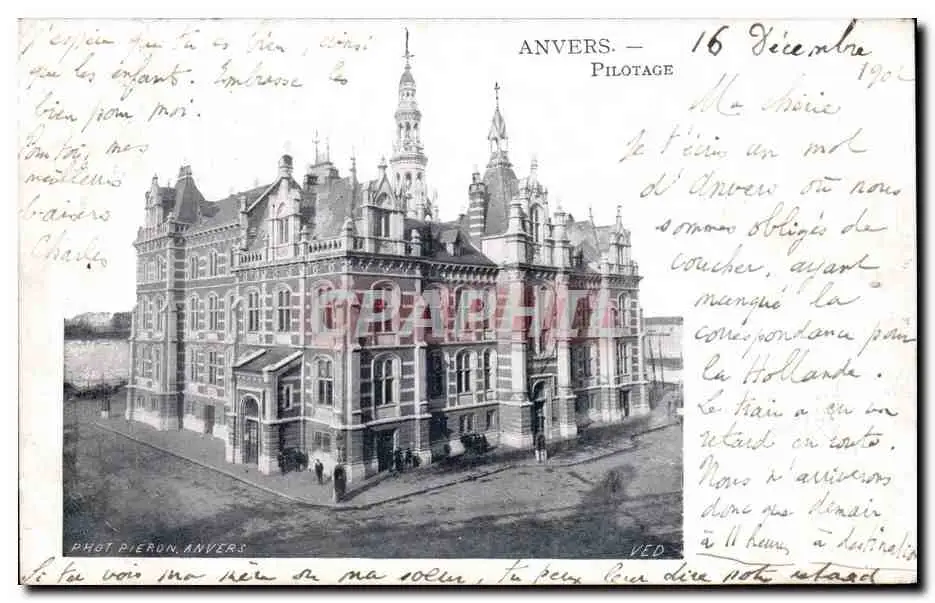 ANVERS. —
PILOTAGE
16 Décembre
190
Ma chérie
Je t'écris un mot
d'Anvers où nous
sommes obligés de
coucher, ayant
manqué la
correspondance pour
la Hollande.
Le train a eu un
retard en route.
Nous n'arriverons
donc que demain
à 11 heures à destination
Si tu vois ma mère ou ma soeur, tu peux leur dire notre retard
J'espère que tu es bien, ainsi
que les enfants. Embrasse les
bien pour moi.
Pour toi, mes
meilleurs
baisers
Charles
CPAPHIL
PHOT. PIERON, ANVERS
VED